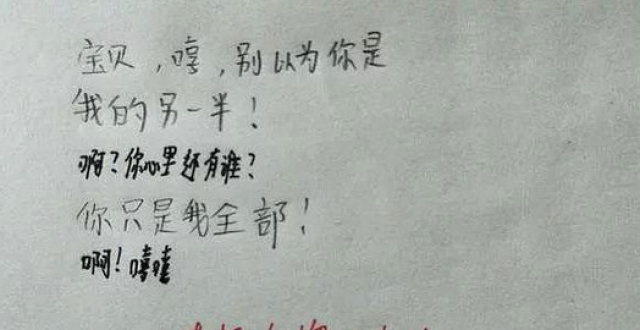 宝贝，嘻，别以为你是
我的另一半！
啊？你心里还有谁？
你只是我全部！
啊！嘻嘻